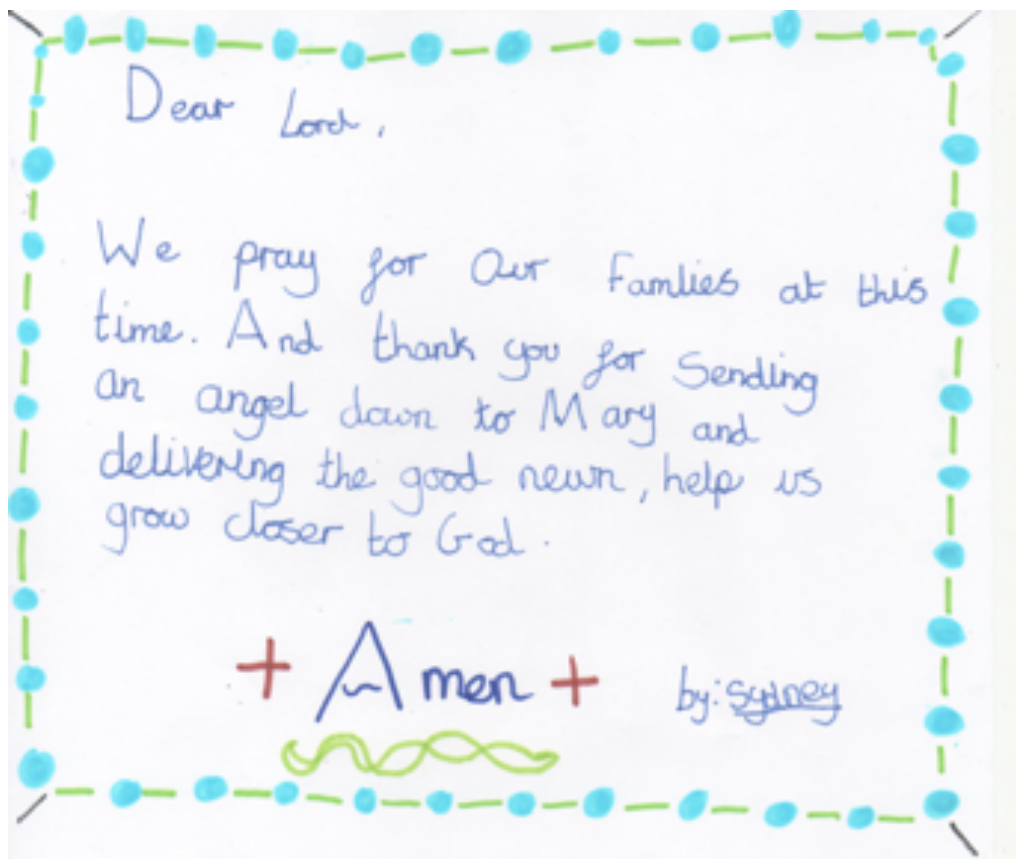 Dear Lord,
We pray for Our Famlies at this
time. And thank you for Sending
an angel down to Mary and
delivering the good newn, help us
grow closer to God.
+ Amen + by: Sydney